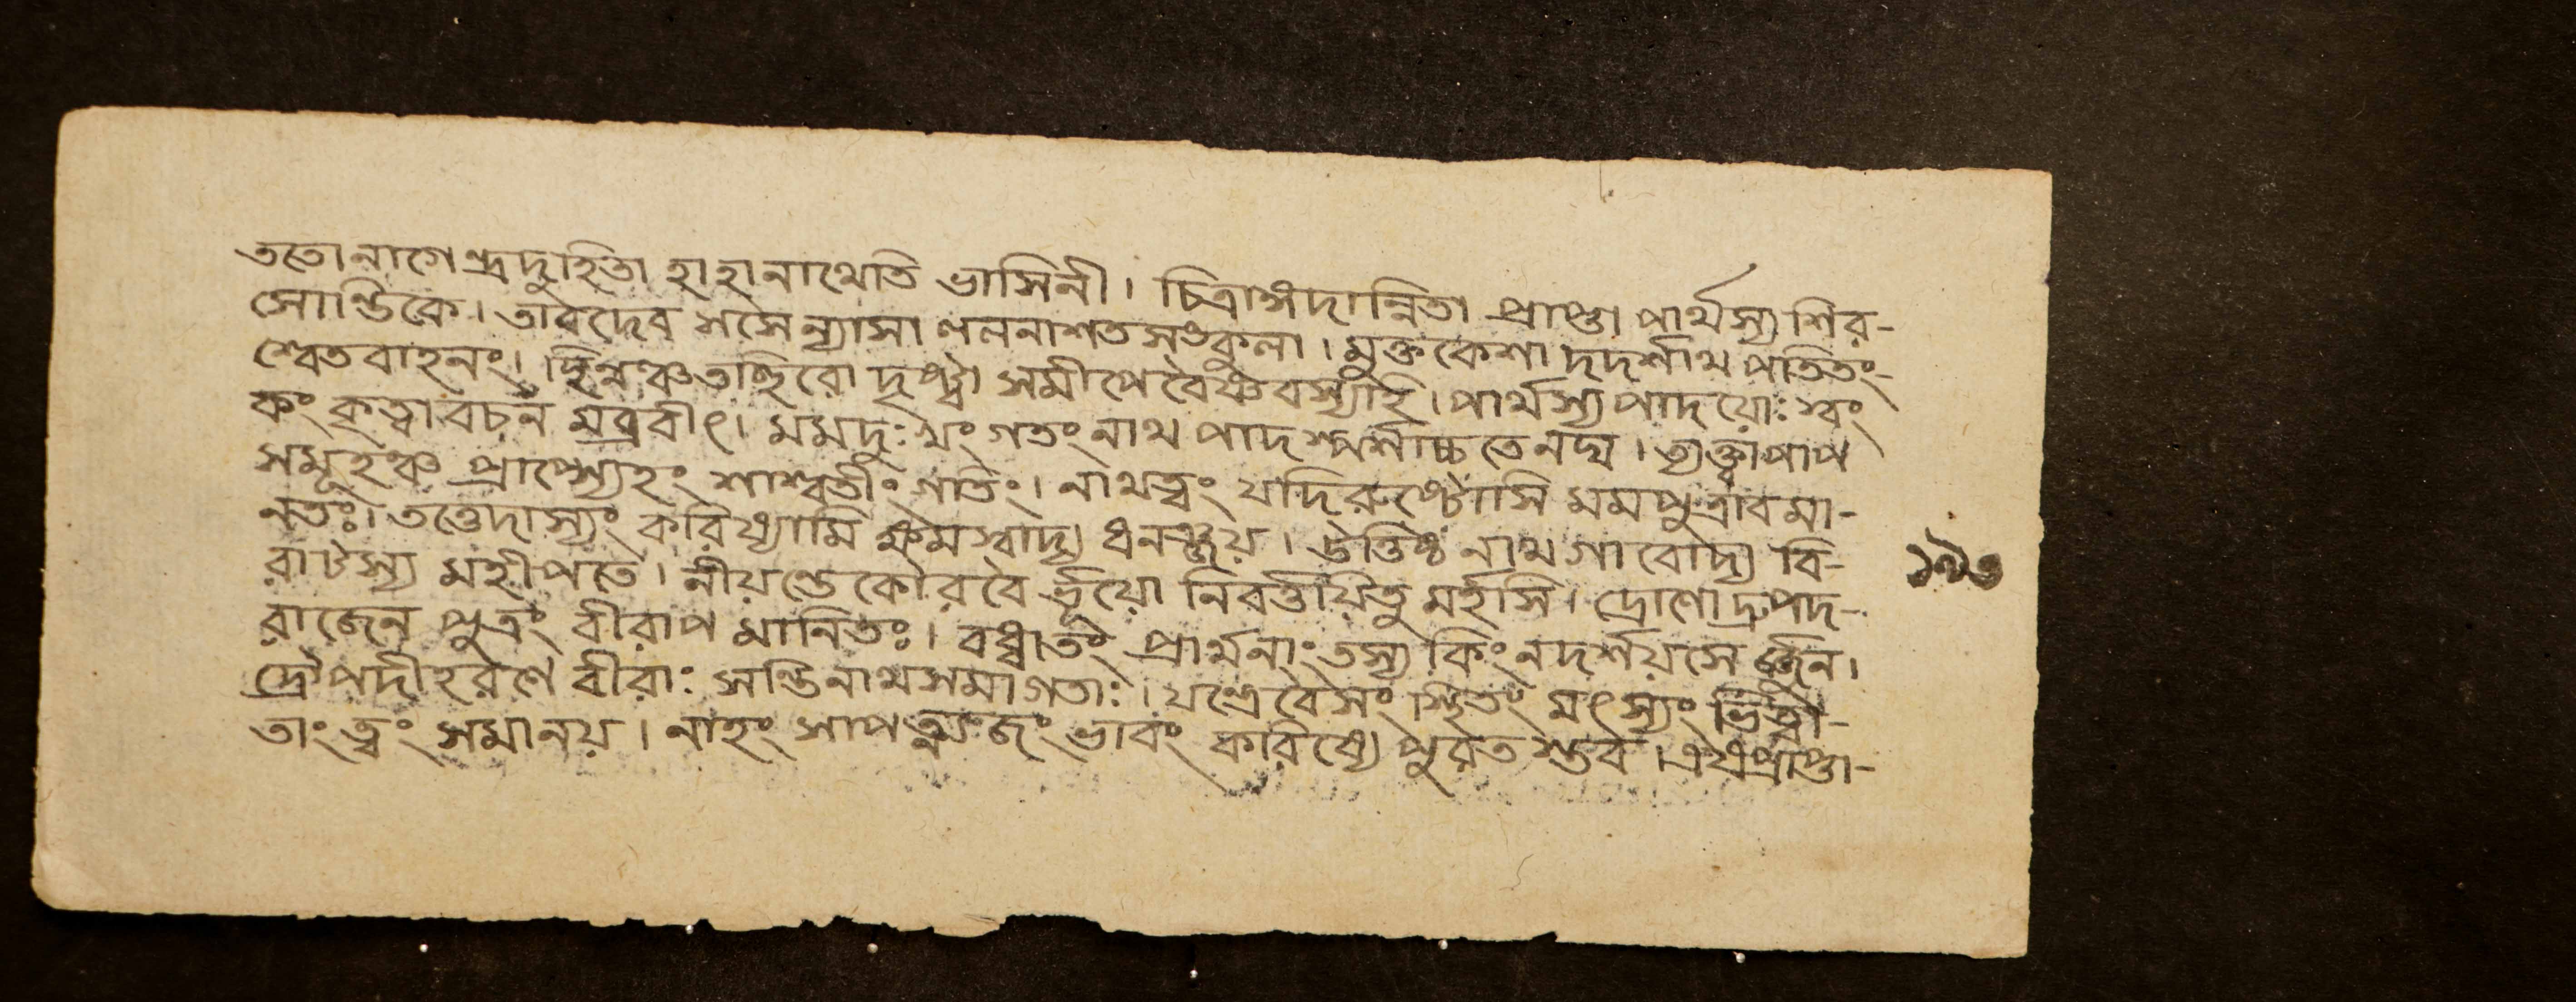 ততো নাগেন্দ্রদুহিতা হাহানাথেতি ভাসিনী। চিত্রাঙ্গদান্বিতা প্রাপ্তা পার্থস্য শির-
সোন্তিকে। তাবদেব সসৈন্যাসা ললনাশত সংকুলা। মুক্তকেশা দদর্শাথ পতিতং-
শ্বেতবাহনং। ছিন্নঞ্চ তচ্ছিরো দৃষ্ট্বা সমীপে বৈষ্ণবস্যহি। পার্থস্য পাদয়োঃ স্বং
কং কৃত্বা বচন মব্রবীৎ। মমদুঃখং গতং নাথ পাদস্পর্শাচ্চ তেনঘ। ত্যক্ত্বাপাপ
সমূহঞ্চ প্রাপ্স্যেহং শাশ্বতীং গতিং। নাথত্বং যদিরুষ্টোসি মমপুত্রাবমা-
নতঃ। তত্তেদাস্যং করিষ্যামি ক্ষমস্বাদ্য ধনঞ্জয়। উত্তিষ্ঠ নাথ গাবোদ্য বি-
রাটস্য মহীপতেঃ। নীয়ন্তে কৌরবৈ র্ভূয়ো নিবর্ত্তয়িতু মর্হসি। দ্রোণোদ্রুপদ-
রাজেন পুত্রং বীরাপ মানিতঃ। বধ্বাতং প্রার্থনাং তস্য কিং নদর্শয়সের্জ্জুন।
দ্রৌপদীহরণে বীরাঃ সন্তিনাথসমাগতাঃ। যন্ত্রেবৈসং স্থিতং মৎস্যং ভিত্বা-
তাং ত্বং সমানয়। নাহং সাপত্ন্যজং ভাবং করিষ্যে পুরত স্তব। এষাপ্রাপ্তা-
১৯৩